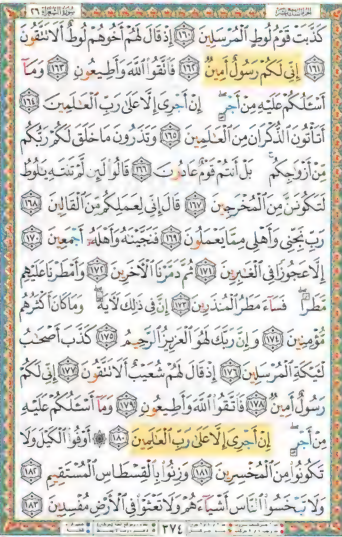 سورة الشعراء ٢٦
كَذَّبَتْ قَوْمُ لُوطٍ الْمُرْسَلِينَ ١٦٠ إِذْ قَالَ لَهُمْ أَخُوهُمْ لُوطٌ أَلَا تَتَّقُونَ
١٦١ إِنِّي لَكُمْ رَسُولٌ أَمِينٌ ١٦٢ فَاتَّقُوا اللَّهَ وَأَطِيعُونِ ١٦٣ وَمَا
أَسْئَلُكُمْ عَلَيْهِ مِنْ أَجْرٍ إِنْ أَجْرِيَ إِلَّا عَلَى رَبِّ الْعَالَمِينَ ١٦٤
أَتَأْتُونَ الذُّكْرَانَ مِنَ الْعَالَمِينَ ١٦٥ وَتَذَرُونَ مَا خَلَقَ لَكُمْ رَبُّكُمْ
مِنْ أَزْوَاجِكُمْ بَلْ أَنْتُمْ قَوْمٌ عَادُونَ ١٦٦ قَالُوا لَئِنْ لَمْ تَنْتَهِ يَالُوطُ
لَتَكُونَنَّ مِنَ الْمُخْرَجِينَ ١٦٧ قَالَ إِنِّي لِعَمَلِكُمْ مِنَ الْقَالِينَ ١٦٨
رَبِّ نَجِّنِي وَأَهْلِي مِمَّا يَعْمَلُونَ ١٦٩ فَنَجَّيْنَاهُ وَأَهْلَهُ أَجْمَعِينَ ١٧٠
إِلَّا عَجُوزًا فِي الْغَابِرِينَ ١٧١ ثُمَّ دَمَّرْنَا الْآخَرِينَ ١٧٢ وَأَمْطَرْنَا عَلَيْهِمْ
مَطَرًا فَسَاءَ مَطَرُ الْمُنْذَرِينَ ١٧٣ إِنَّ فِي ذَلِكَ لَآيَةً وَمَا كَانَ أَكْثَرُهُمْ
مُؤْمِنِينَ ١٧٤ وَإِنَّ رَبَّكَ لَهُوَ الْعَزِيزُ الرَّحِيمُ ١٧٥ كَذَّبَ أَصْحَابُ
لْئَيْكَةِ الْمُرْسَلِينَ ١٧٦ إِذْ قَالَ لَهُمْ شُعَيْبٌ أَلَا تَتَّقُونَ ١٧٧ إِنِّي لَكُمْ
رَسُولٌ أَمِينٌ ١٧٨ فَاتَّقُوا اللَّهَ وَأَطِيعُونِ ١٧٩ وَمَا أَسْئَلُكُمْ عَلَيْهِ
مِنْ أَجْرٍ إِنْ أَجْرِيَ إِلَّا عَلَى رَبِّ الْعَالَمِينَ ١٨٠ ۞ أَوْفُوا الْكَيْلَ وَلَا
تَكُونُوا مِنَ الْمُخْسِرِينَ ١٨١ وَزِنُوا بِالْقِسْطَاسِ الْمُسْتَقِيمِ ١٨٢
وَلَا تَبْخَسُوا النَّاسَ أَشْيَاءَهُمْ وَلَا تَعْثَوْا فِي الْأَرْضِ مُفْسِدِينَ ١٨٣
٣٧٤